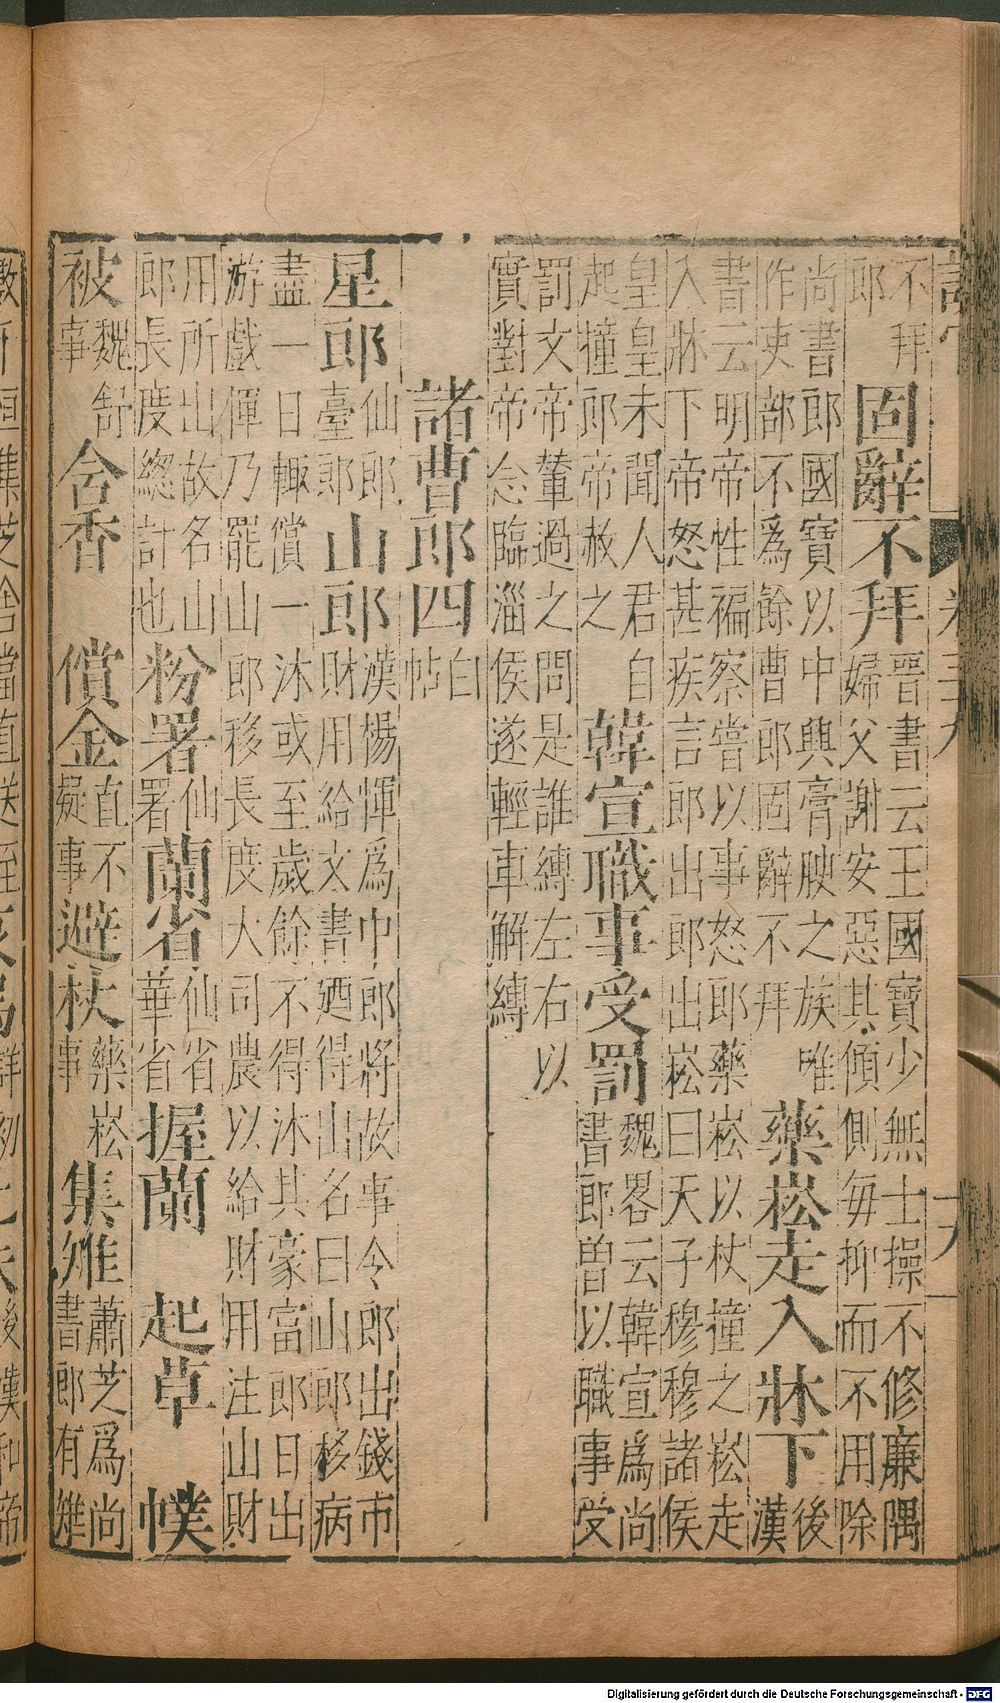 不拜郎固辭不拜晋書云王國寶少無士操不修廉隅婦父謝安惡其傾側每抑而不用除
尚書郎國寶以中興膏腴之族唯作吏部不爲餘曹郎固辭不拜藥崧走入牀下後漢
書云明帝性褊察嘗以事怒郎藥崧以杖撞之崧走入牀下帝怒甚疾言郎出郎出崧曰天子穆穆諸侯
皇皇未聞人君自起撞郎帝赦之韓宣職事受罰魏畧云韓宣爲尚書郎曽以職事受
罰文帝輦過之問是誰縛左右以實對帝念臨淄侯遂輕車解縛
諸曹郎四白帖
星郎仙郎臺郎山郎漢楊惲爲中郎將故事令郎出錢市財用給文書廼得出名曰山郎移病
盡一日輙償一沐或至歲餘不得沐其豪富郎日出游戲惲乃罷山郎移長度大司農以給財用注山財
用所出故名山郎長度緫計也粉署仙署蘭省仙省華省握蘭 起草 幞
被魏舒事含香 償金直不疑事避杖藥崧事集雉蕭芝爲尚書郎有雉